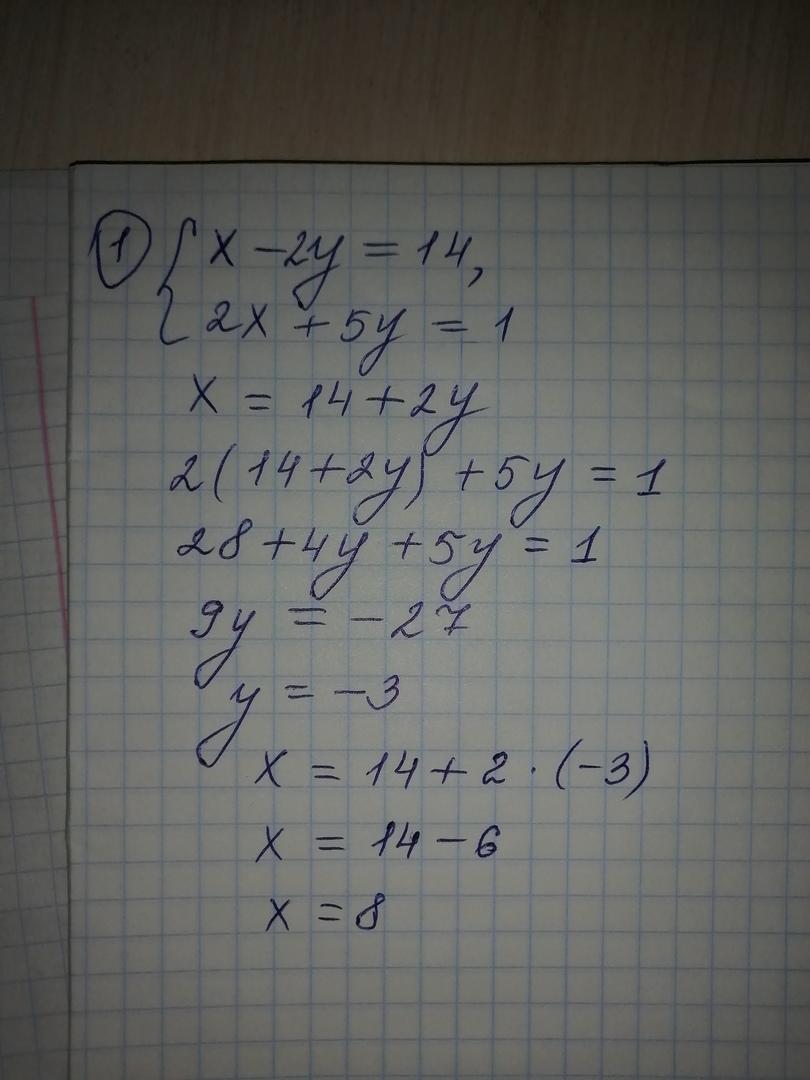 ① { x - 2y = 14,
2x + 5y = 1
x = 14 + 2y
2(14 + 2y) + 5y = 1
28 + 4y + 5y = 1
9y = -27
y = -3
x = 14 + 2 · (-3)
x = 14 - 6
x = 8